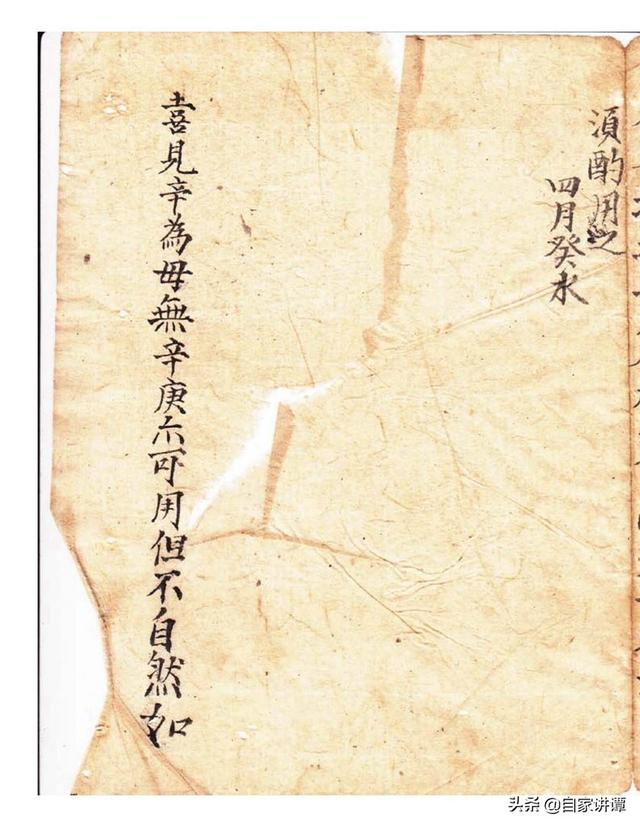 湏酌用之
四月癸水
喜見辛為母無辛庚亦可用但不自然如
头条 @自家讲谭